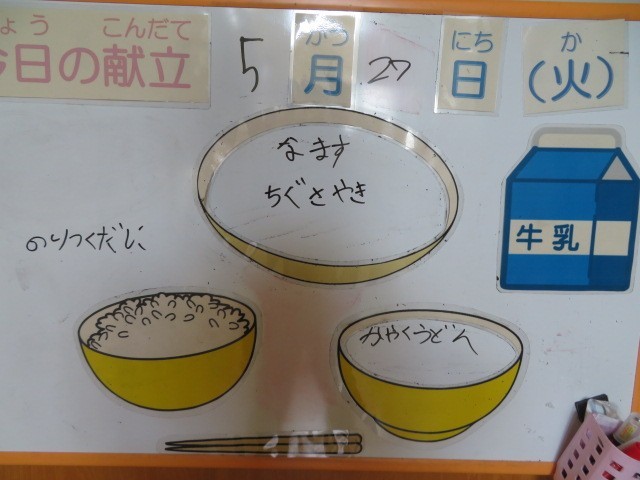 きょう こんだて
今日の献立
がつ にち か
5月27日(火)
なます
ちぐさやき
のりつくだに
牛乳
かやくうどん